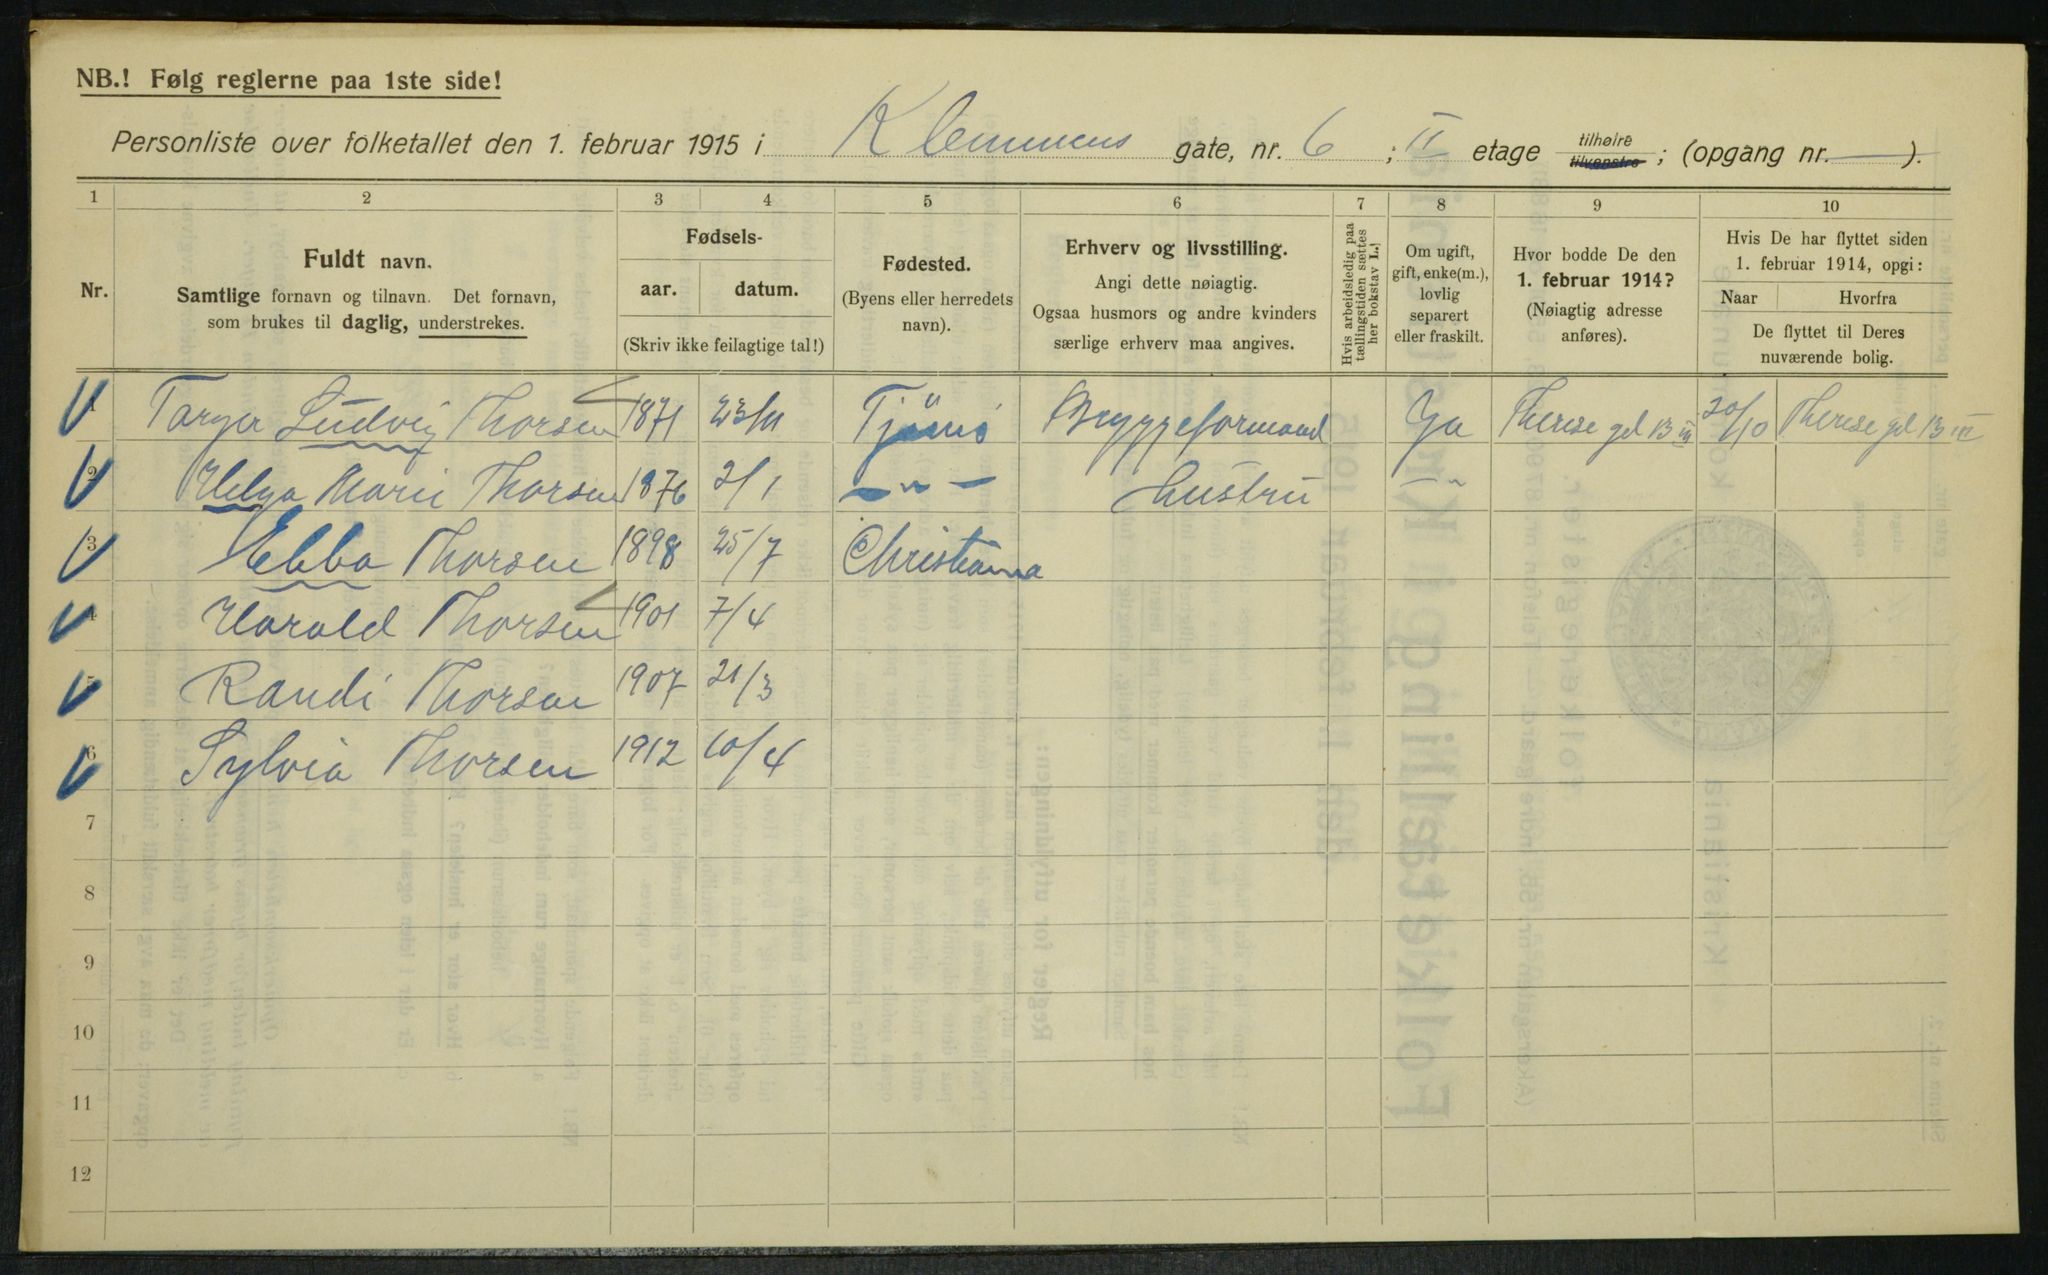 NB.! Følg reglerne paa 1ste side!
Personliste over folketallet den 1. februar 1915 i Klemmens gate, nr. 6 ; II etage tilhøire tilvenstre ; (opgang nr. — ).
1 2 3 4 5 6 7 8 9 10
Nr.
Fuldt navn.
Samtlige fornavn og tilnavn. Det fornavn,
som brukes til daglig, understrekes.
Fødsels-
aar. datum.
(Skriv ikke feilagtige tal!)
Fødested.
(Byens eller herredets
navn).
Erhverv og livsstilling.
Angi dette nøiagtig.
Ogsaa husmors og andre kvinders
særlige erhverv maa angives.
Hvis arbeidsledig paa
tællingstiden sættes
her bokstav L.!
Om ugift,
gift, enke(m.),
lovlig
separert
eller fraskilt.
Hvor bodde De den
1. februar 1914?
(Nøiagtig adresse
anføres).
Hvis De har flyttet siden
1. februar 1914, opgi:
Naar Hvorfra
De flyttet til Deres
nuværende bolig.
1 Torger Ludvig Thorsen 1871 23/11 Tjømø Bryggeformand Ja Therese gd 13 III 20/10 Therese gd 13 III
2 Helga Marie Thorsen 1876 2/1 — " — hustru — " —
3 Ebba Thorsen 1898 25/7 Christiania
4 Harald Thorsen 1901 7/4
5 Randi Thorsen 1907 21/3
6 Sylvia Thorsen 1912 10/4
7
8
9
10
11
12